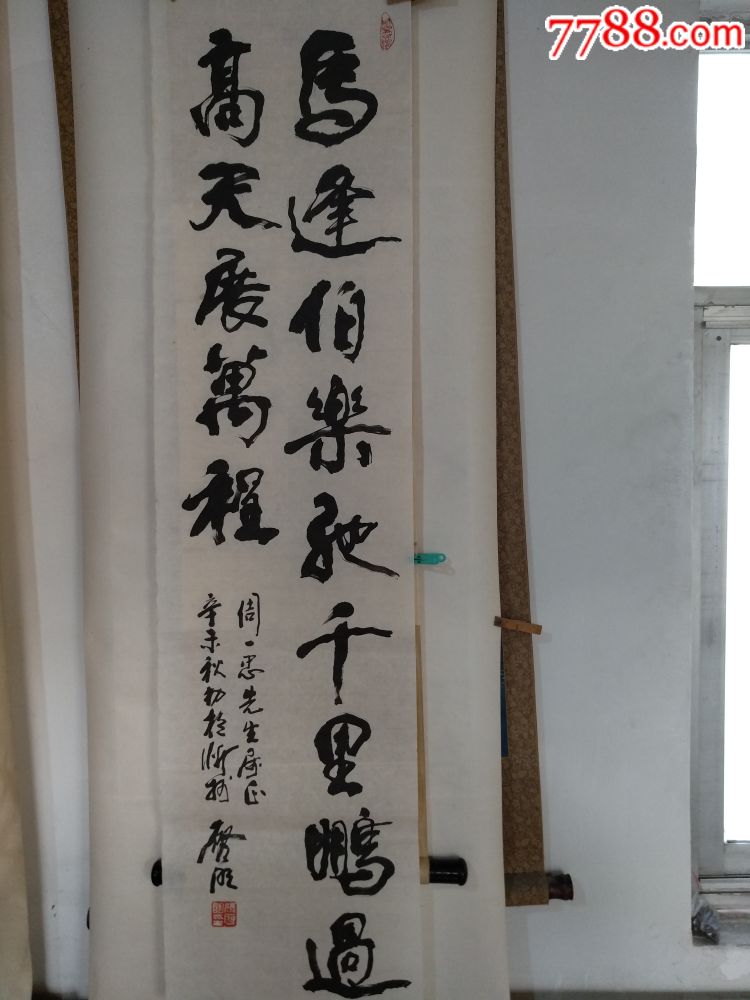 7788.com
馬逢伯樂馳千里鵬過
高天展萬程
周一思先生屬正
辛未秋於
啓明